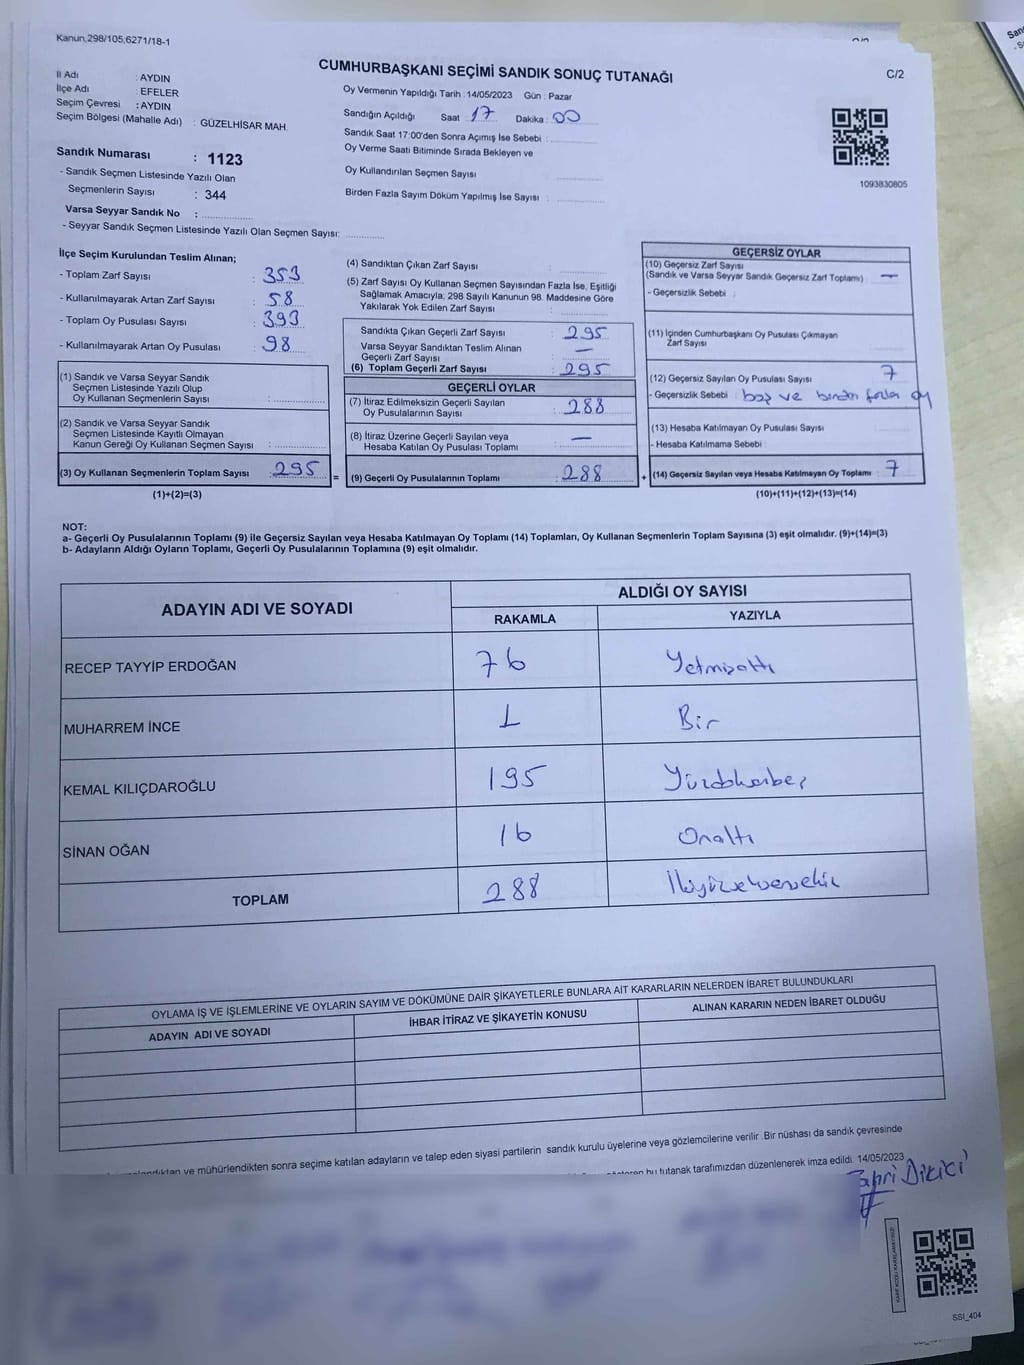 Kanun,298/105,6271/18-1
CUMHURBAŞKANI SEÇİMİ SANDIK SONUÇ TUTANAĞI
C/2
İl Adı : AYDIN
İlçe Adı : EFELER
Seçim Çevresi : AYDIN
Seçim Bölgesi (Mahalle Adı) : GÜZELHİSAR MAH.
Oy Vermenin Yapıldığı Tarih :14/05/2023 Gün : Pazar
Sandığın Açıldığı Saat : 17 Dakika : 00
Sandık Saat 17:00'den Sonra Açımış İse Sebebi :
Oy Verme Saati Bitiminde Sırada Bekleyen ve
Oy Kullandırılan Seçmen Sayısı
Birden Fazla Sayım Döküm Yapılmış İse Sayısı :
1093830805
Sandık Numarası : 1123
- Sandık Seçmen Listesinde Yazılı Olan
Seçmenlerin Sayısı : 344
Varsa Seyyar Sandık No :
- Seyyar Sandık Seçmen Listesinde Yazılı Olan Seçmen Sayısı:
İlçe Seçim Kurulundan Teslim Alınan;
- Toplam Zarf Sayısı : 353
- Kullanılmayarak Artan Zarf Sayısı : 58
- Toplam Oy Pusulası Sayısı : 393
- Kullanılmayarak Artan Oy Pusulası : 98
(1) Sandık ve Varsa Seyyar Sandık
Seçmen Listesinde Yazılı Olup
Oy Kullanan Seçmenlerin Sayısı :
(2) Sandık ve Varsa Seyyar Sandık
Seçmen Listesinde Kayıtlı Olmayan
Kanun Gereği Oy Kullanan Seçmen Sayısı :
(3) Oy Kullanan Seçmenlerin Toplam Sayısı : 295 =
(1)+(2)=(3)
(4) Sandıktan Çıkan Zarf Sayısı :
(5) Zarf Sayısı Oy Kullanan Seçmen Sayısından Fazla İse, Eşitliği
Sağlamak Amacıyla, 298 Sayılı Kanunun 98. Maddesine Göre
Yakılarak Yok Edilen Zarf Sayısı :
Sandıkta Çıkan Geçerli Zarf Sayısı : 295
Varsa Seyyar Sandıktan Teslim Alınan
Geçerli Zarf Sayısı : —
(6) Toplam Geçerli Zarf Sayısı : 295
GEÇERLİ OYLAR
(7) İtiraz Edilmeksizin Geçerli Sayılan
Oy Pusulalarının Sayısı : 288
(8) İtiraz Üzerine Geçerli Sayılan veya
Hesaba Katılan Oy Pusulası Toplamı : —
(9) Geçerli Oy Pusulalarının Toplamı : 288 +
GEÇERSİZ OYLAR
(10) Geçersiz Zarf Sayısı
(Sandık ve Varsa Seyyar Sandık Geçersiz Zarf Toplamı) : —
- Geçersizlik Sebebi :
(11) İçinden Cumhurbaşkanı Oy Pusulası Çıkmayan
Zarf Sayısı
(12) Geçersiz Sayılan Oy Pusulası Sayısı : 7
- Geçersizlik Sebebi : boş ve birden fazla oy
(13) Hesaba Katılmayan Oy Pusulası Sayısı
- Hesaba Katılmama Sebebi :
(14) Geçersiz Sayılan veya Hesaba Katılmayan Oy Toplamı : 7
(10)+(11)+(12)+(13)=(14)
NOT:
a- Geçerli Oy Pusulalarının Toplamı (9) ile Geçersiz Sayılan veya Hesaba Katılmayan Oy Toplamı (14) Toplamları, Oy Kullanan Seçmenlerin Toplam Sayısına (3) eşit olmalıdır. (9)+(14)=(3)
b- Adayların Aldığı Oyların Toplamı, Geçerli Oy Pusulalarının Toplamına (9) eşit olmalıdır.
ADAYIN ADI VE SOYADI
ALDIĞI OY SAYISI
RAKAMLA YAZIYLA
RECEP TAYYİP ERDOĞAN 76 Yetmişaltı
MUHARREM İNCE 1 Bir
KEMAL KILIÇDAROĞLU 195 Yüzdoksanbeş
SİNAN OĞAN 16 Onaltı
TOPLAM 288 İkiyüzseksensekiz
OYLAMA İŞ VE İŞLEMLERİNE VE OYLARIN SAYIM VE DÖKÜMÜNE DAİR ŞİKAYETLERLE BUNLARA AİT KARARLARIN NELERDEN İBARET BULUNDUKLARI
ADAYIN ADI VE SOYADI İHBAR İTİRAZ VE ŞİKAYETİN KONUSU ALINAN KARARIN NEDEN İBARET OLDUĞU
ve mühürlendikten sonra seçime katılan adayların ve talep eden siyasi partilerin sandık kurulu üyelerine veya gözlemcilerine verilir .Bir nüshası da sandık çevresinde
bu tutanak tarafımızdan düzenlenerek imza edildi. 14/05/2023
Dikici
SSI_404